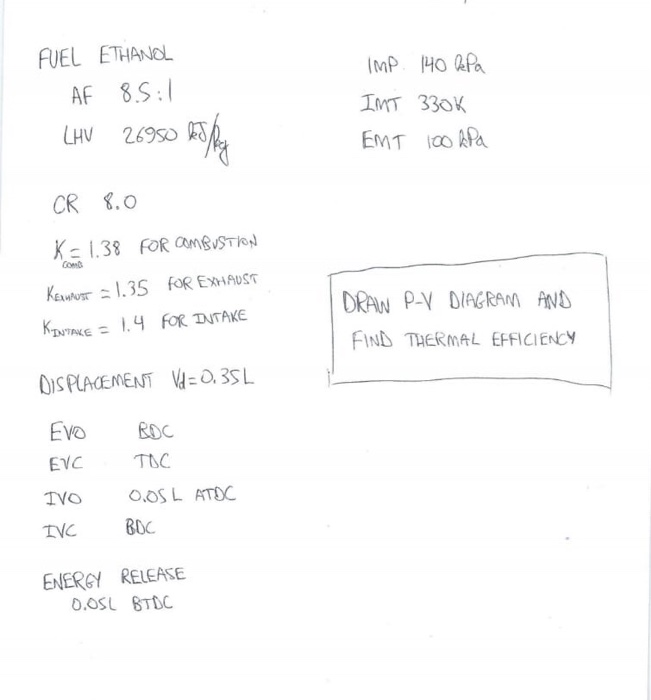 FUEL ETHANOL
AF 8.5:1
LHV 26950 kJ/kg
CR 8.0
K COMB = 1.38 FOR COMBUSTION
K EXHAUST = 1.35 FOR EXHAUST
K INTAKE = 1.4 FOR INTAKE
DISPLACEMENT Vd=0.35L
EVO BDC
EVC TDC
IVO 0.05L ATDC
IVC BDC
ENERGY RELEASE
0.05L BTDC
IMP. 140 kPa
IMT 330K
EMT 100 kPa
DRAW P-V DIAGRAM AND
FIND THERMAL EFFICIENCY